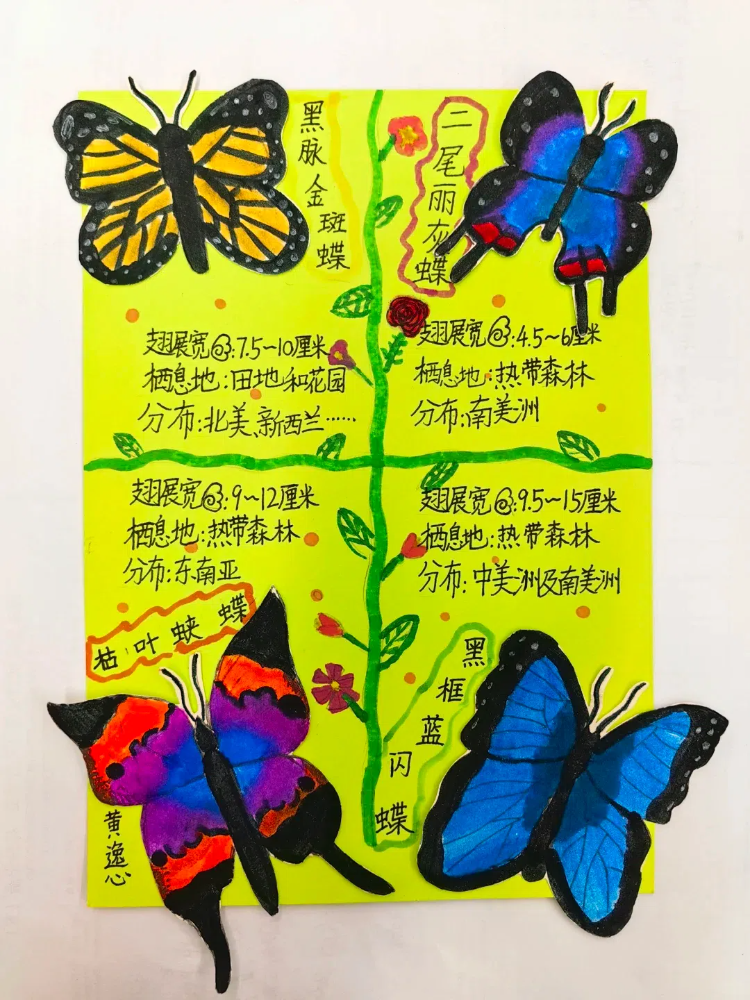 黑脉金斑蝶
二尾丽灰蝶
翅展宽:7.5~10厘米
栖息地:田地和花园
分布:北美、新西兰……
翅展宽:4.5~6厘米
栖息地:热带森林
分布:南美洲
翅展宽:9~12厘米
栖息地:热带森林
分布:东南亚
枯叶蛱蝶
翅展宽:9.5~15厘米
栖息地:热带森林
分布:中美洲及南美洲
黑框蓝闪蝶
黄逸心